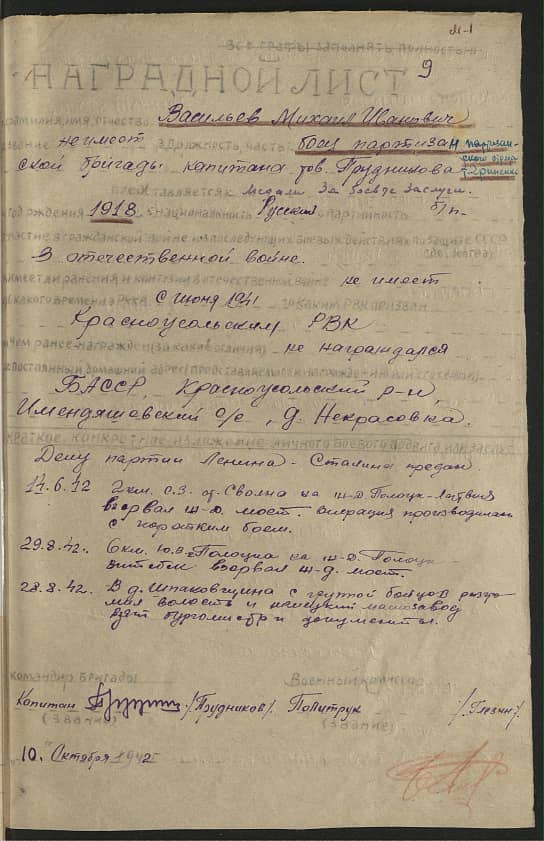 М-1
Все графы заполнять полностью
9
НАГРАДНОЙ ЛИСТ
Фамилия, имя, отчество Васильев Михаил Иванович
звание не имеет Должность, часть боец партизан партизан-
ской бригады капитана тов. Прудникова ского отряда
т. Гриненко
представляется к медали За боевые заслуги.
Год рождения 1918 национальность Русский партийность б/п.
участие в гражданской войне и последующих боевых действиях по защите СССР
В отечественной войне.
имеет ли ранения и контузии в отечественной войне не имеет
с какого времени в РККА с июня 1941 каким РВК призван
Красноусольским РВК
чем ранее награжден (за какие отличия) не награждался
постоянный домашний адрес
БАССР, Красноусольский р-н,
Имендяшевский с/с, д. Некрасовка.
Краткое, конкретное изложение личного боевого подвига или заслуг
Делу партии Ленина - Сталина предан.
14.6.42 2 км. С.З. ст. Свольна на ж-д. Полоцк - Латвия
взорвал ж-д. мост. Операция производилась
с коротким боем.
29.8.42. 6 км. Ю.В. Полоцка на ж-д. Полоцк -
Витебск взорвал ж-д. мост.
28.8.42. В д. Шпаковщина с группой бойцов разгро-
мил волость и немецкий маслозавод
взят бургомистр и документы.
Командир бригады Военный комиссар
Капитан /Прудников/. Политрук /Глезин/.
(звание) (звание)
"10" Октября 1942